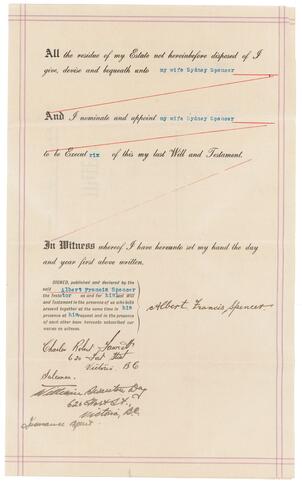 All the residue of my Estate not hereinbefore disposed of I
give, devise and bequeath unto my wife Sydney Spencer
And I nominate and appoint my wife Sydney Spencer
to be Execut rix of this my last Will and Testament.
In Witness whereof I have hereunto set my hand the day
and year first above written.
SIGNED, published and declared by the
said Albert Francis Spencer
the testator as and for his last Will
and Testament in the presence of us who both
present together at the same time in his
presence at his request and in the presence
of each other have hereunto subscribed our
names as witness.
Albert Francis Spencer
Charles Robert
620 Fort Street
Victoria BC
Salesman
William Day
620 Fort St.
Victoria, B.C.
Insurance agent